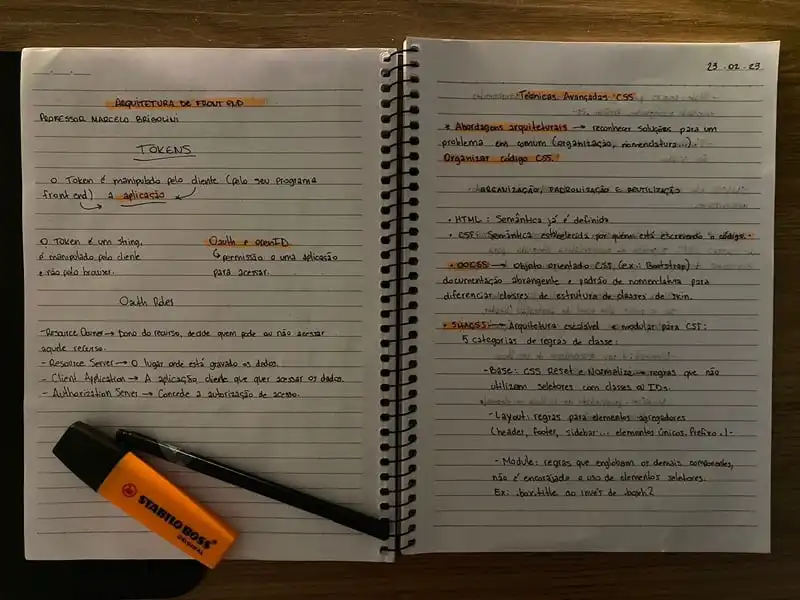 ARQUITETURA DE FRONT END
PROFESSOR MARCELO BRIGOLINI
TOKENS
O Token é manipulado pelo cliente (pelo seu programa
front end) a aplicação
O Token é um string,
é manipulado pelo cliente
e não pelo browser.
Oauth e openID
permissão a uma aplicação
para acessar.
Oauth Roles
- Resource Owner → Dono do recurso, decide quem pode ou não acessar
aquele recurso.
- Resource Server → O lugar onde está gravado os dados.
- Client Application → A aplicação cliente que quer acessar os dados.
- Authorization Server → Concede a autorização de acesso.
STABILO BOSS
ORIGINAL
23 . 02 . 23
Técnicas Avançadas CSS
* Abordagens arquiteturais → reconhecer soluções para um
problema em comum (organização, nomenclatura...).
Organizar código CSS.
ORGANIZAÇÃO, PADRONIZAÇÃO E REUTILIZAÇÃO
• HTML: Semântica já é definida
• CSS: Semântica estabelecida por quem está escrevendo o código.
• OOCSS → Objeto orientado CSS (ex.: Bootstrap)
documentação abrangente e padrão de nomenclatura para
diferenciar classes de estrutura de classes de skin.
• SMACSS → Arquitetura escalável e modular para CSS:
5 categorias de regras de classe:
- Base: CSS Reset e Normalize → regras que não
utilizam seletores com classes ou IDs.
- Layout: regras para elementos agregadores
(header, footer, sidebar... elementos únicos. Prefixo .l-
- Module: regras que englobam os demais componentes,
não é encorajado o uso de elementos seletores.
Ex: .box.title ao invés de .box h2